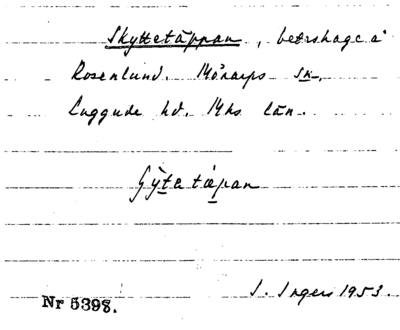 Skyttetäppan, beteshage å
Rosenlund. Mörarps sn,
Luggude hd. Mhs län.
Gỳtetæpan
Nr 5398.
I. Ingers 1953.